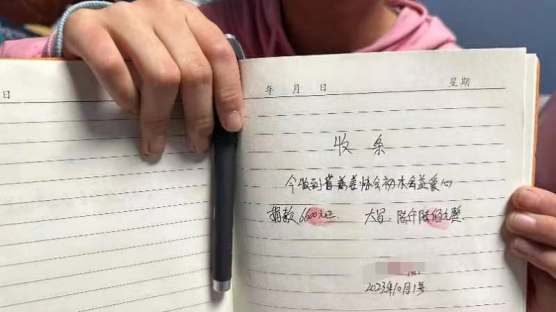 日
年 月 日 星期
收条
今收到省慈善协会初木公益爱心
捐款6600元正. 大写 陆仟陆佰元整.
2023年10月1号